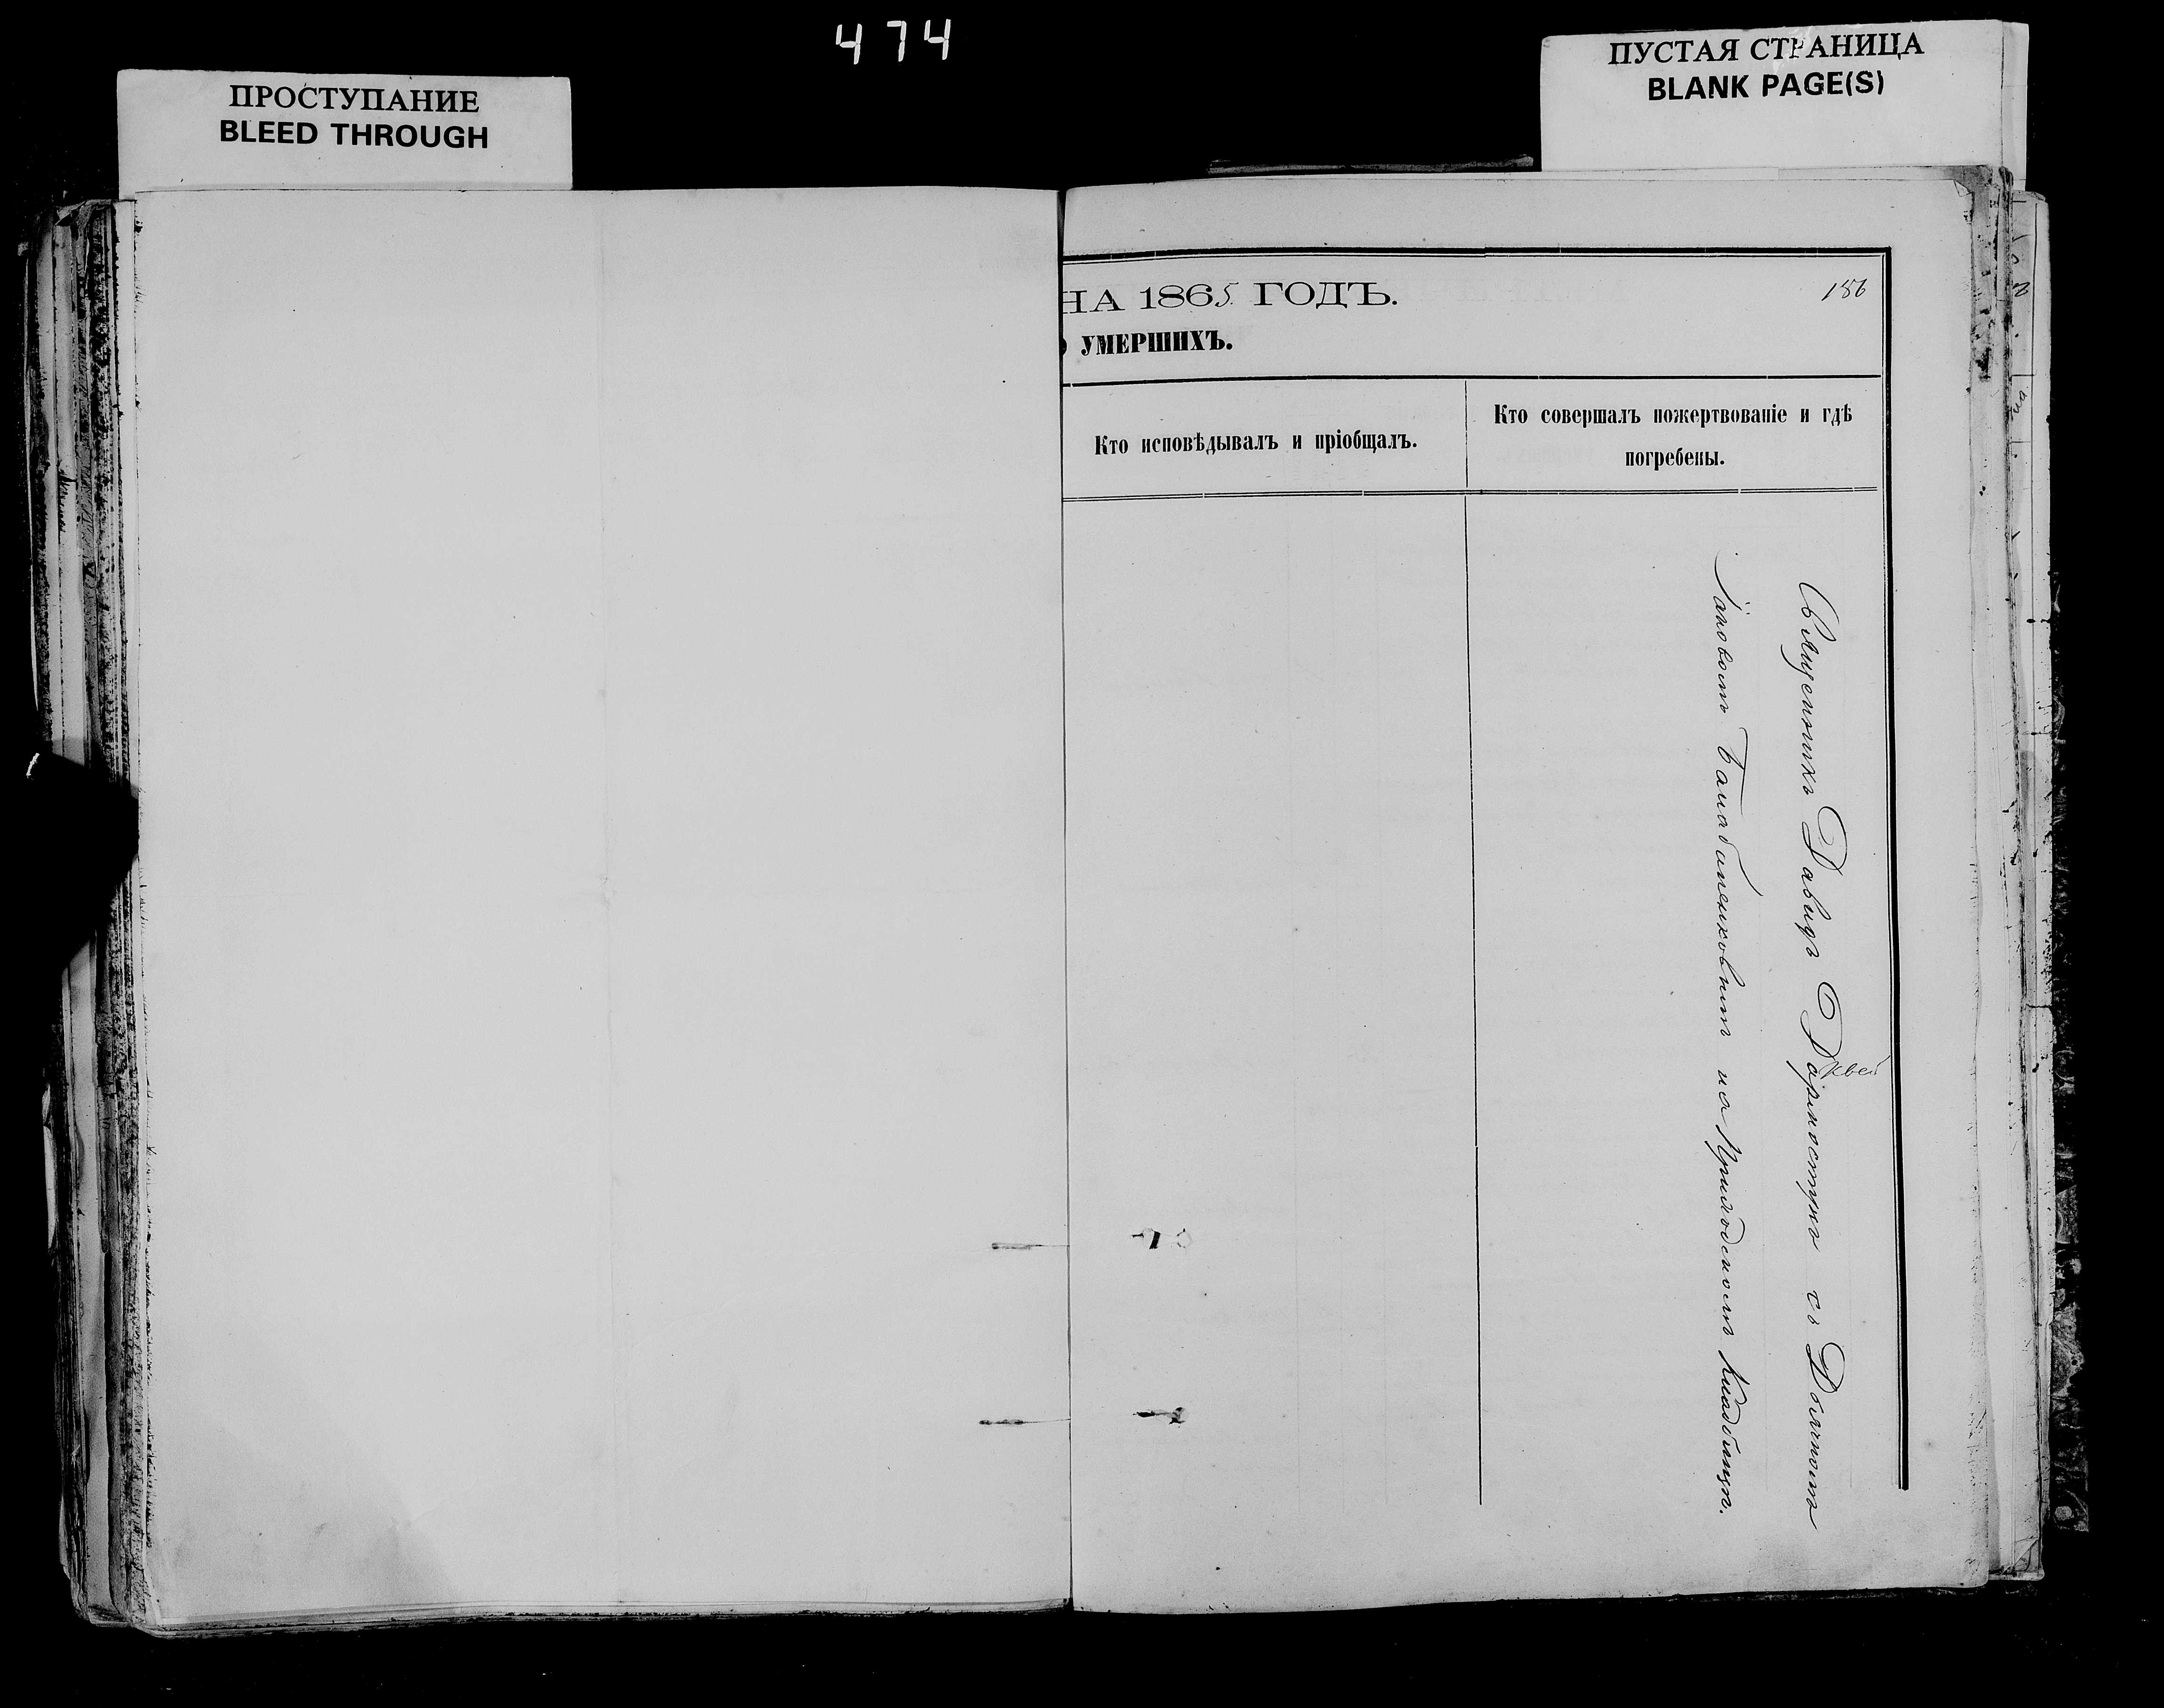 474
ПРОСТУПАНИЕ
BLEED THROUGH
ПУСТАЯ СТРАНИЦА
BLANK PAGE(S)
НА 1865 ГОДЪ.
186
УМЕРШИХЪ.
Кто исповѣдывалъ и пріобщалъ.
Кто совершалъ пожертвованіе и гдѣ
погребены.
Священникъ Давидъ съ Дьячкомъ
на Приходскомъ Кладбищѣ.